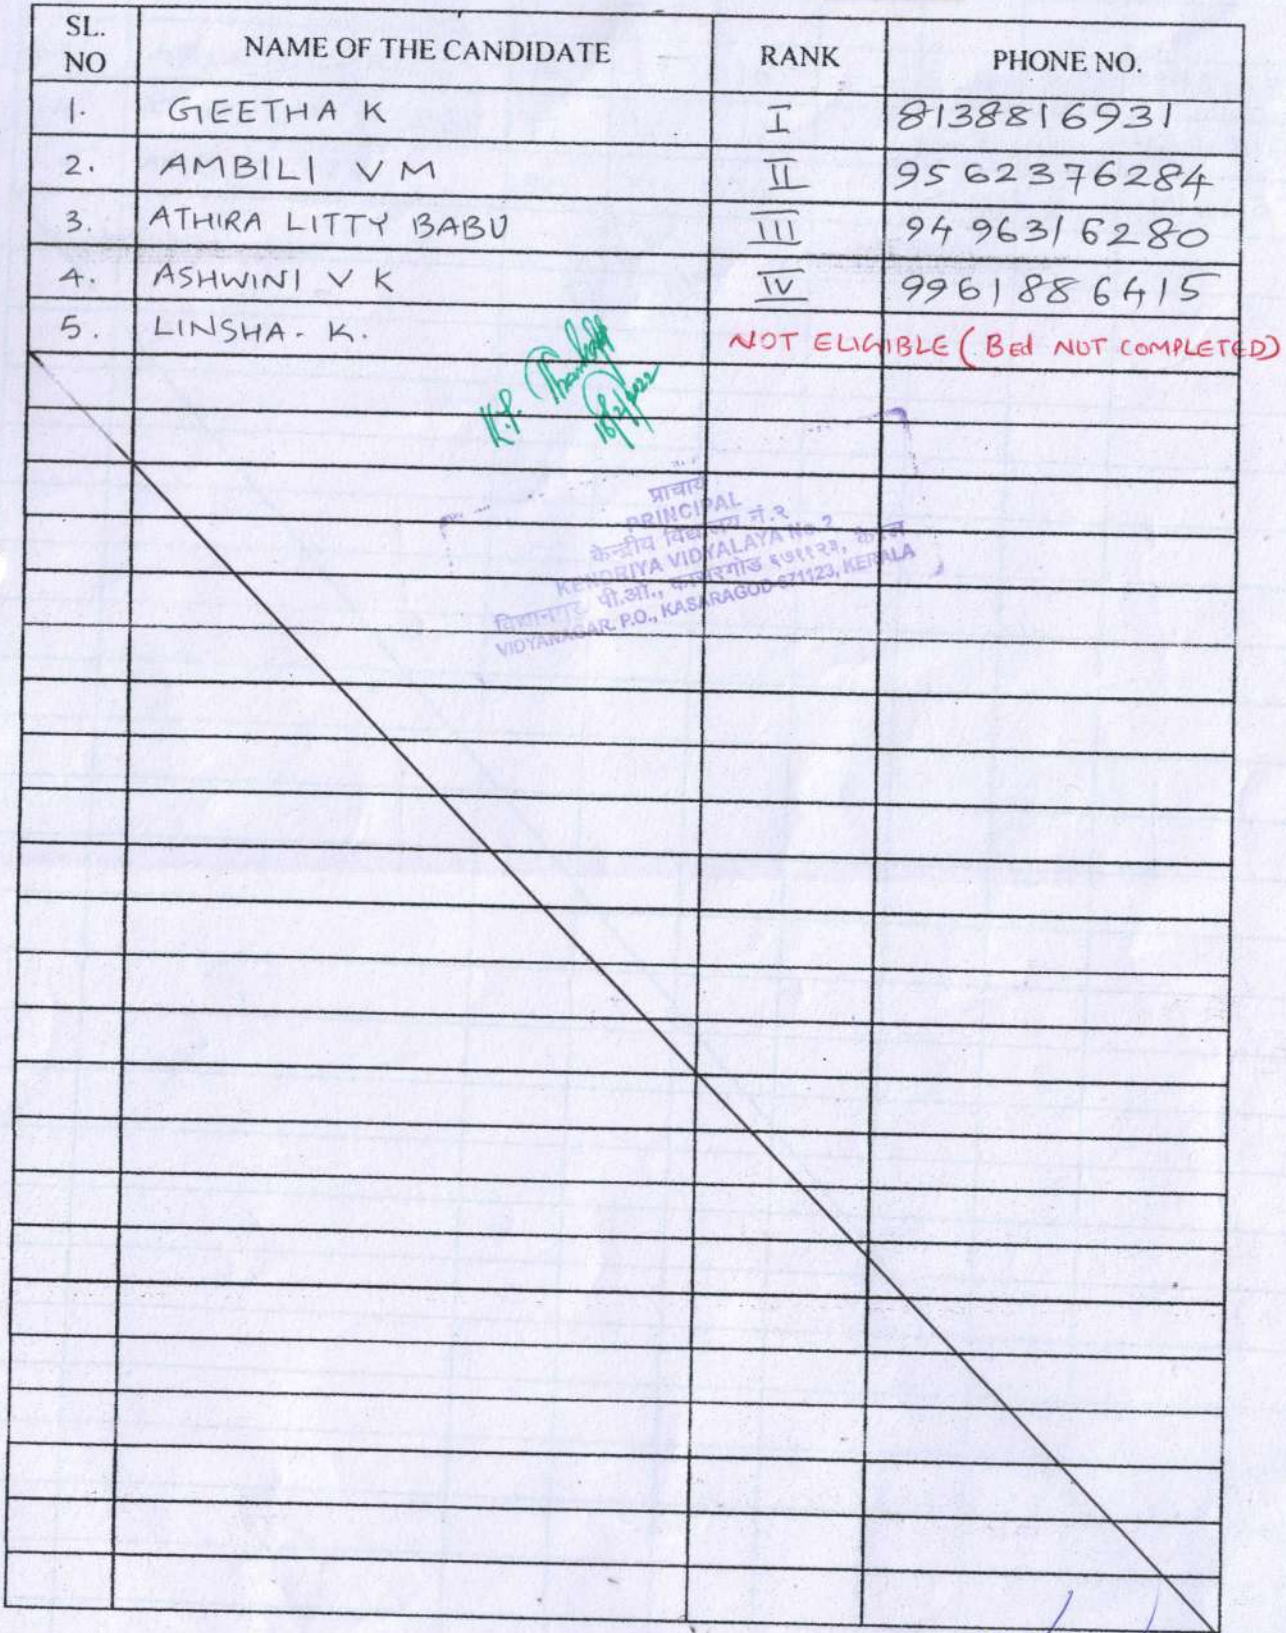 SL. NO NAME OF THE CANDIDATE RANK PHONE NO.
1. GEETHA K I 8138816931
2. AMBILI V M II 9562376284
3. ATHIRA LITTY BABU III 9496316280
4. ASHWINI V K IV 9961886415
5. LINSHA. K. NOT ELIGIBLE (BEd NOT COMPLETED)
K.P.
16/2/2022
प्राचार्य
PRINCIPAL
केन्द्रीय विद्यालय नं.२
KENDRIYA VIDYALAYA No 2
विद्यानगर पी.ओ., कासरगोड ६७११२३, केरल
VIDYANAGAR. P.O., KASARAGOD-671123, KERALA